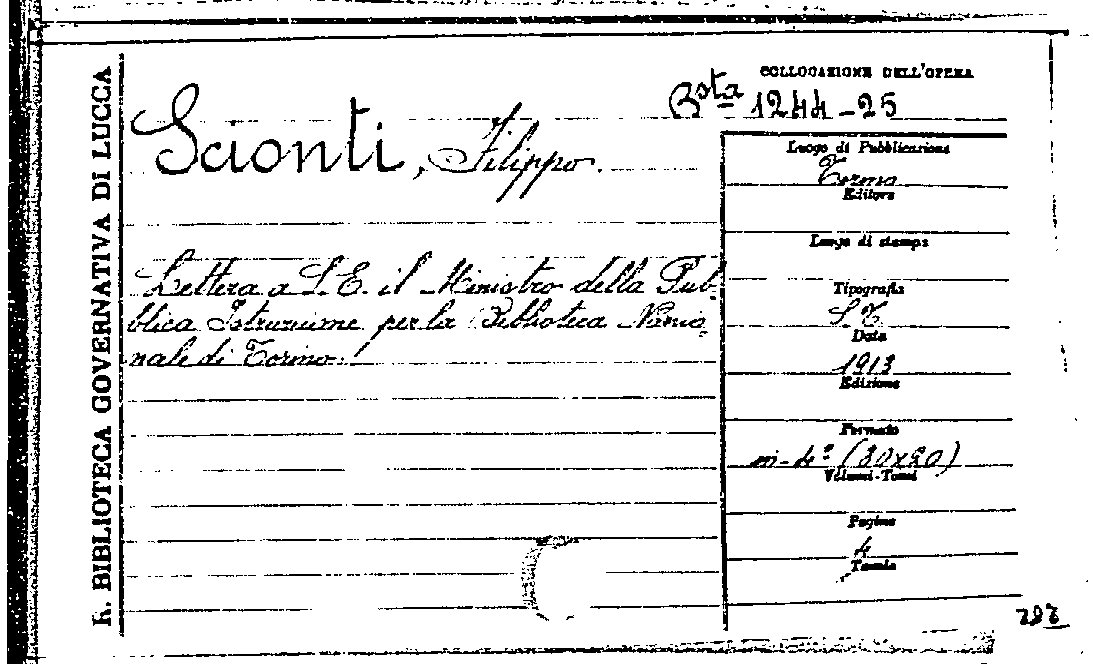 R. BIBLIOTECA GOVERNATIVA DI LUCCA
COLLOCAZIONE DELL'OPERA
Bsta 1244-25
Scionti, Filippo.
Lettera a S. E. il Ministro della Pub-
blica Istruzione per la Biblioteca Nazio-
nale di Torino.
Luogo di Pubblicazione
Torino
Editore
Luogo di stampa
Tipografia
S. T.
Data
1913
Edizione
Formato
in-4º (30x20)
Volumi-Tomi
Pagine
4
Tavole